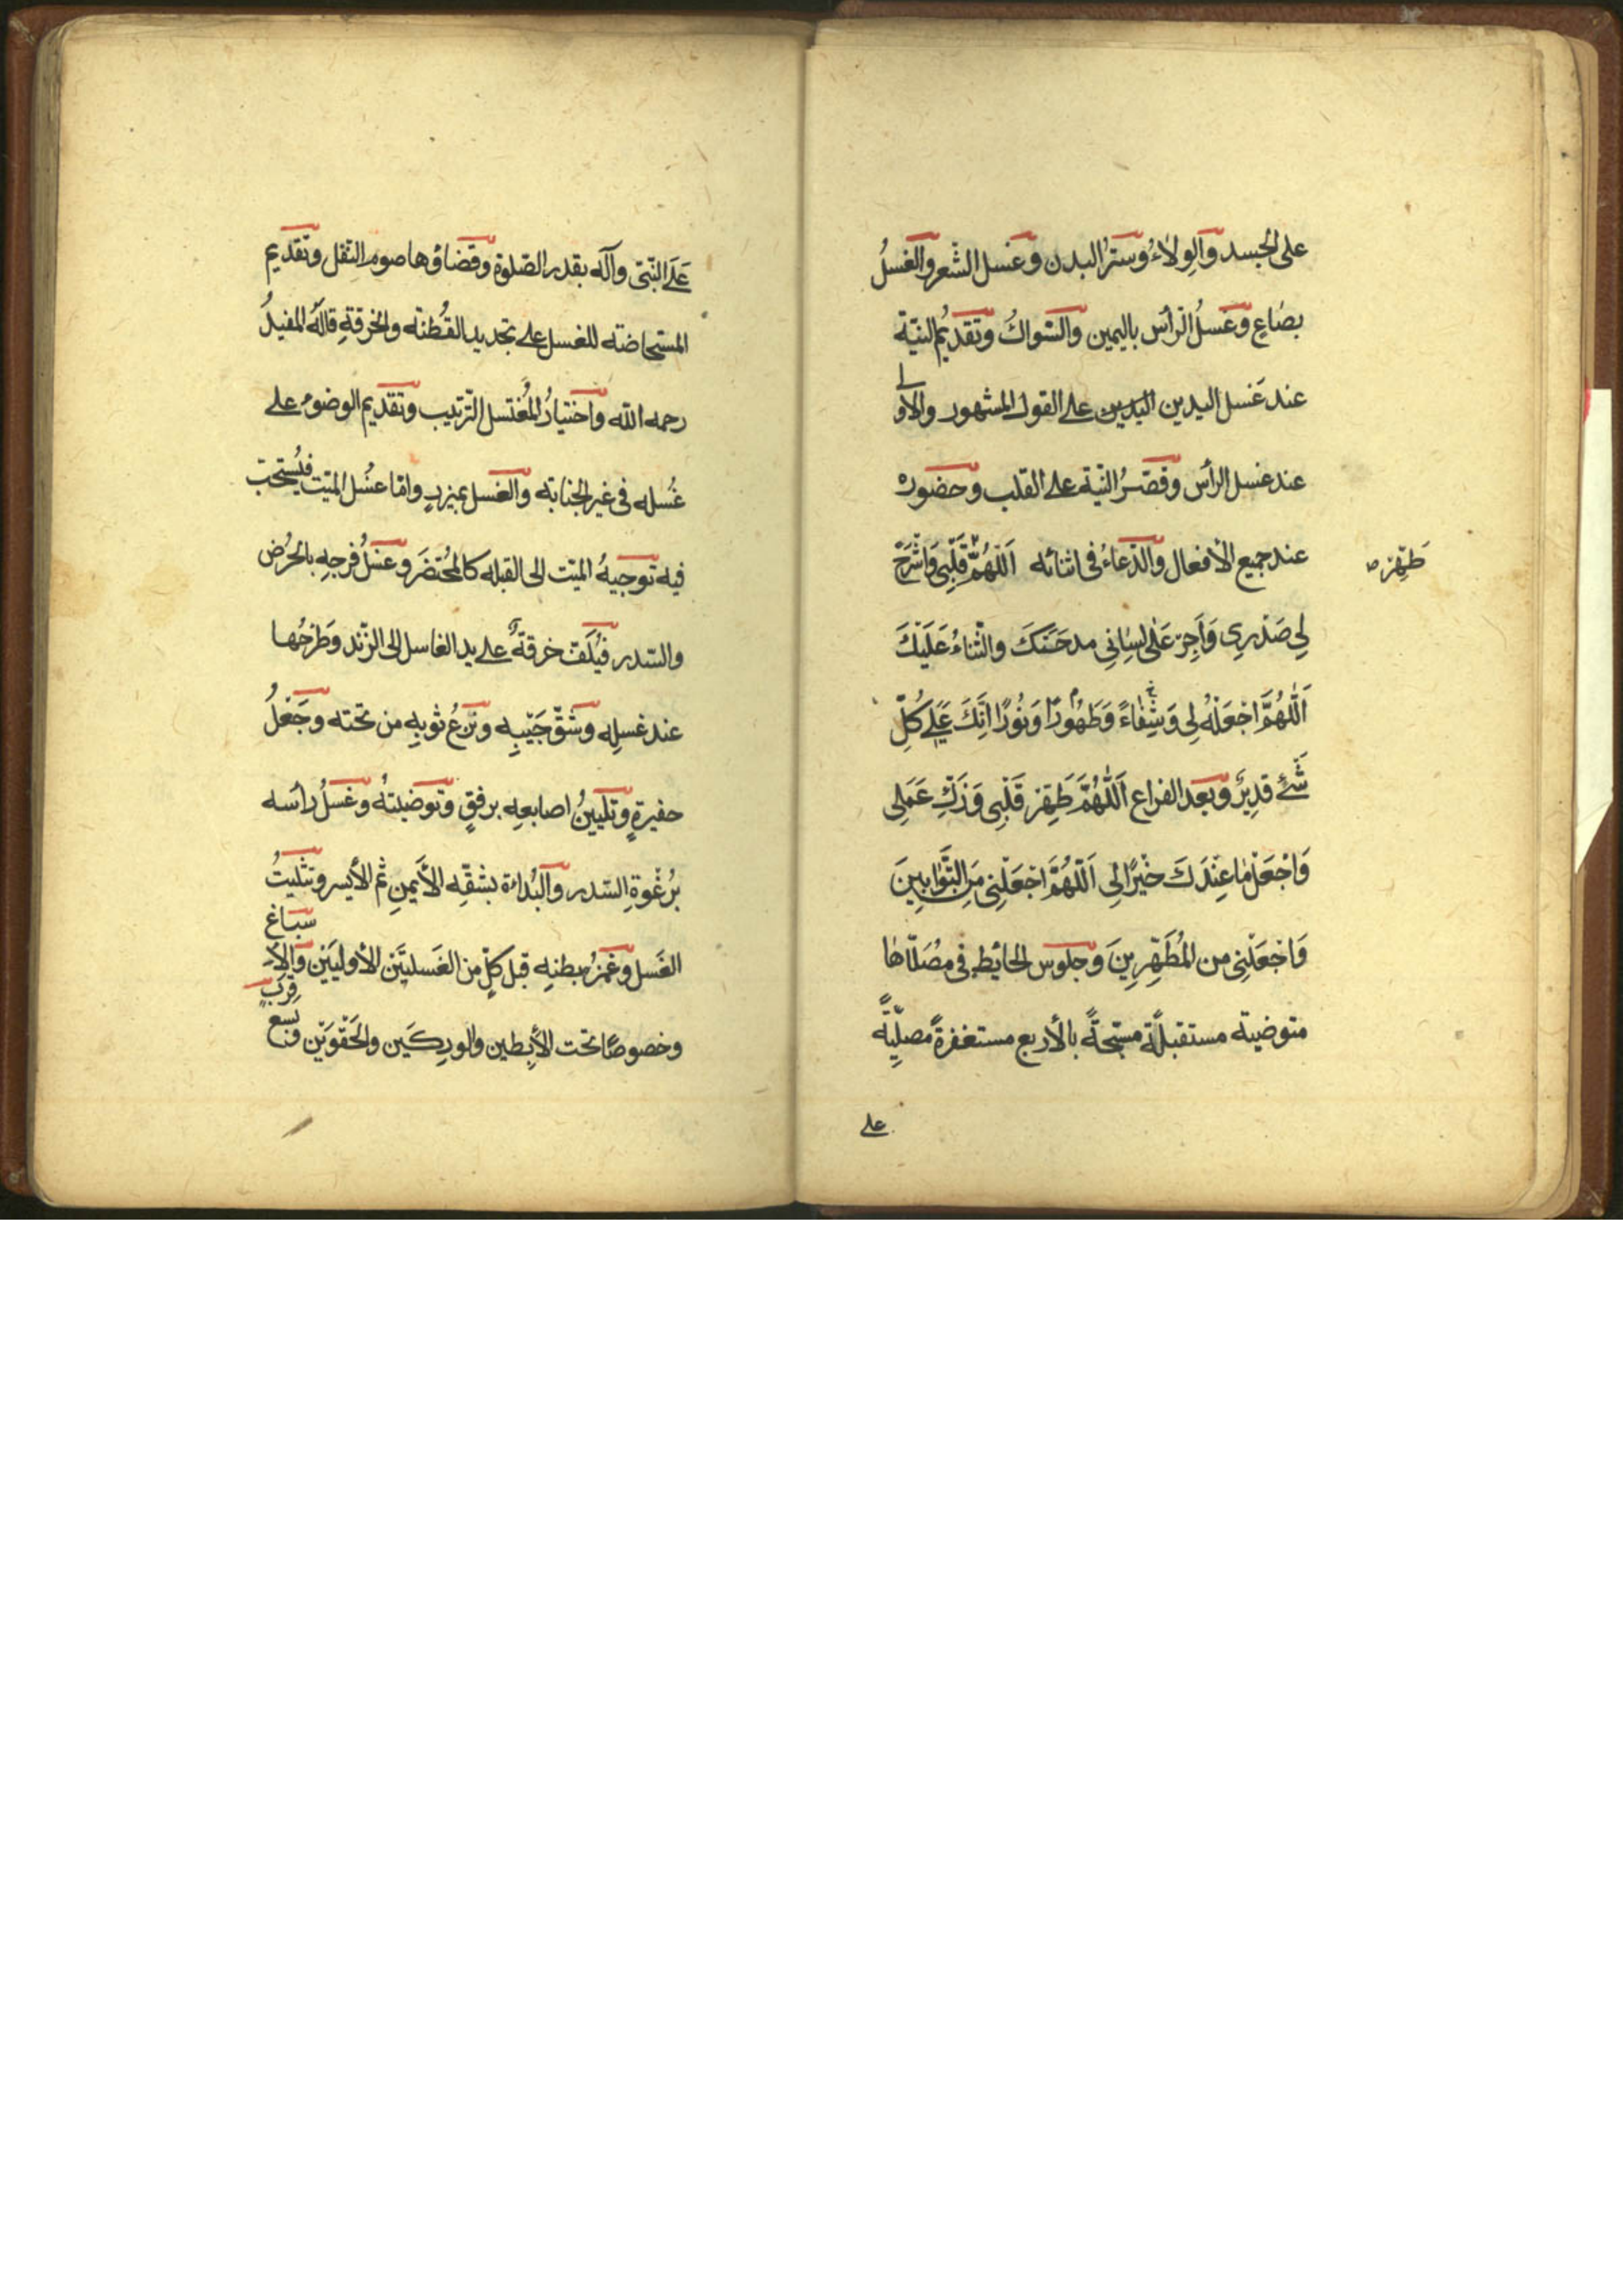 على الجسد والوِلاءُ وستْرُ البدن وغَسل الشّعر والغسلُ
بصاعٍ وغسلُ الرأس باليمين والسّواكُ وتقديمُ النيّة
عند غَسل اليدين اليدين على القول المشهور والأولى
عند غسل الرأس وقصْرُ النيّة على القلب وحضوره
عند جميع الأفعال والدّعاءُ فى اثنائه اَللّهُمَّ قَلْبِى وَاشْرَحْ
طَهِّرْ ص
لِى صَدْرِى وَاَجِرْ عَلى لِسٰانِى مدحَتَكَ والثّناءُ عَلَيْكَ
اَللّهُمَّ اجْعَلْهُ لِى وَشِفٰاءً وَطَهُورًا وَنُورًا اِنَّكَ عَلى كُلِّ
شَئٍ قدِيْرٌ وبعد الفراغ اَللّهُمَّ طَهِّرْ قَلْبِى وَزَكِّ عَمَلِى
وَاجْعَلْ مٰا عِنْدَكَ خيْرًا لِى اَللّهُمَّ اجْعَلْنِى مِنَ التَّوّابِينَ
وَاجْعَلْنِى من المُطَهِّرِينَ وجلوس الحائط فى مُصَلّاها
متوضية مستقبلةً مسبّحةً بالأربع مستغفرةً مصلّيةً
على
عَلَى النّبىّ وآله بقدر الصّلوة وقضاؤها صوم النّفل وتقديم
المستحاضة للغسل على تجديد القُطنة والخرقةِ قاله المفيدُ
رحمه الله واختيارُ المُغتسل التّرتيب وتقديم الوضوء على
غُسله فى غير الجنابة والغسل بميزرٍ وامّا غُسل الميّت فيُستحبّ
فيه توجيهُ الميّت الى القبلة كالمُحْتضَر وغسْلُ فرجِهِ بالحُرُض
والسّدر فيُلَفّ خرقةٌ على يد الغاسل الى الزّند وَطَرْحُها
عند غسلِه وشقّ جَيْبِه ونزعُ ثوبِه من تحته وجَعْلُ
حفيرةٍ وتليينُ اصابعِه برفقٍ وتوضيتهُ وغسلُ رأسه
بُرغْوةِ السّدر والبُداءة بشقِّه الأيمنِ ثم الأيسر وتثليثُ
الغَسل وغمزُ بطنِه قبل كلٍّ من الغَسلتيَن الأوليَيْن والأسباغ
وخصوصًا تحت الأبِطين والورِكَين والحَقْوَيْن وبسع قِرَبٍ